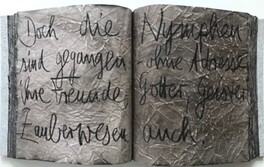 Doch die
sind gegangen
ihre Freunde,
Zauberwesen
Nymphen
- ohne Adresse.
Götter, Geister
auch.